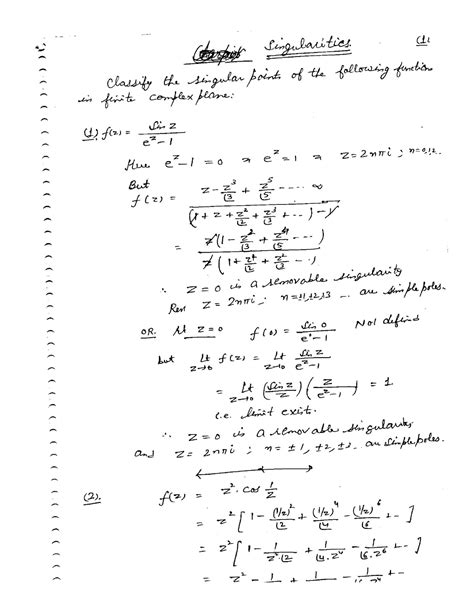 Singularities (1)
Classify the singular points of the following functions
in finite complex plane:
(1) f(z) = Sin z / e^z - 1
Here e^z - 1 = 0 ⇒ e^z = 1 ⇒ z = 2nπi ; n=0,1,2..
But
f(z) = z - z^3/⌊3 + z^5/⌊5 ---- ∞ / (1 + z + z^2/⌊2 + z^3/⌊3 + ..) - 1
= z(1 - z^2/⌊3 + z^4/⌊5 ----) / z(1 + z/⌊2 + z^2/⌊3 - ..)
∴ z = 0 is a removable singularity
Rem z = 2nπi ; n = ±1, ±2, ±3 ... are simple poles.
OR. At z = 0 f(0) = Sin 0 / e^0 - 1 Not defined
but Lt z→0 f(z) = Lt z→0 Sin z / e^z - 1
= Lt z→0 (Sin z / z) (z / e^z - 1) = 1
i.e. limit exist.
∴ z = 0 is a removable singularity
and z = 2nπi ; n = ±1, ±2, ±3.. are simple poles.
(2). f(z) = z^2 . cos 1/z
= z^2 [ 1 - (1/z)^2/⌊2 + (1/z)^4/⌊4 - (1/z)^6/⌊6 + -- ]
= z^2 [ 1 - 1/z^2.⌊2 + 1/⌊4.z^4 - 1/⌊6.z^6 + -- ]
= z^2 - 1 + 1 - 1 + --